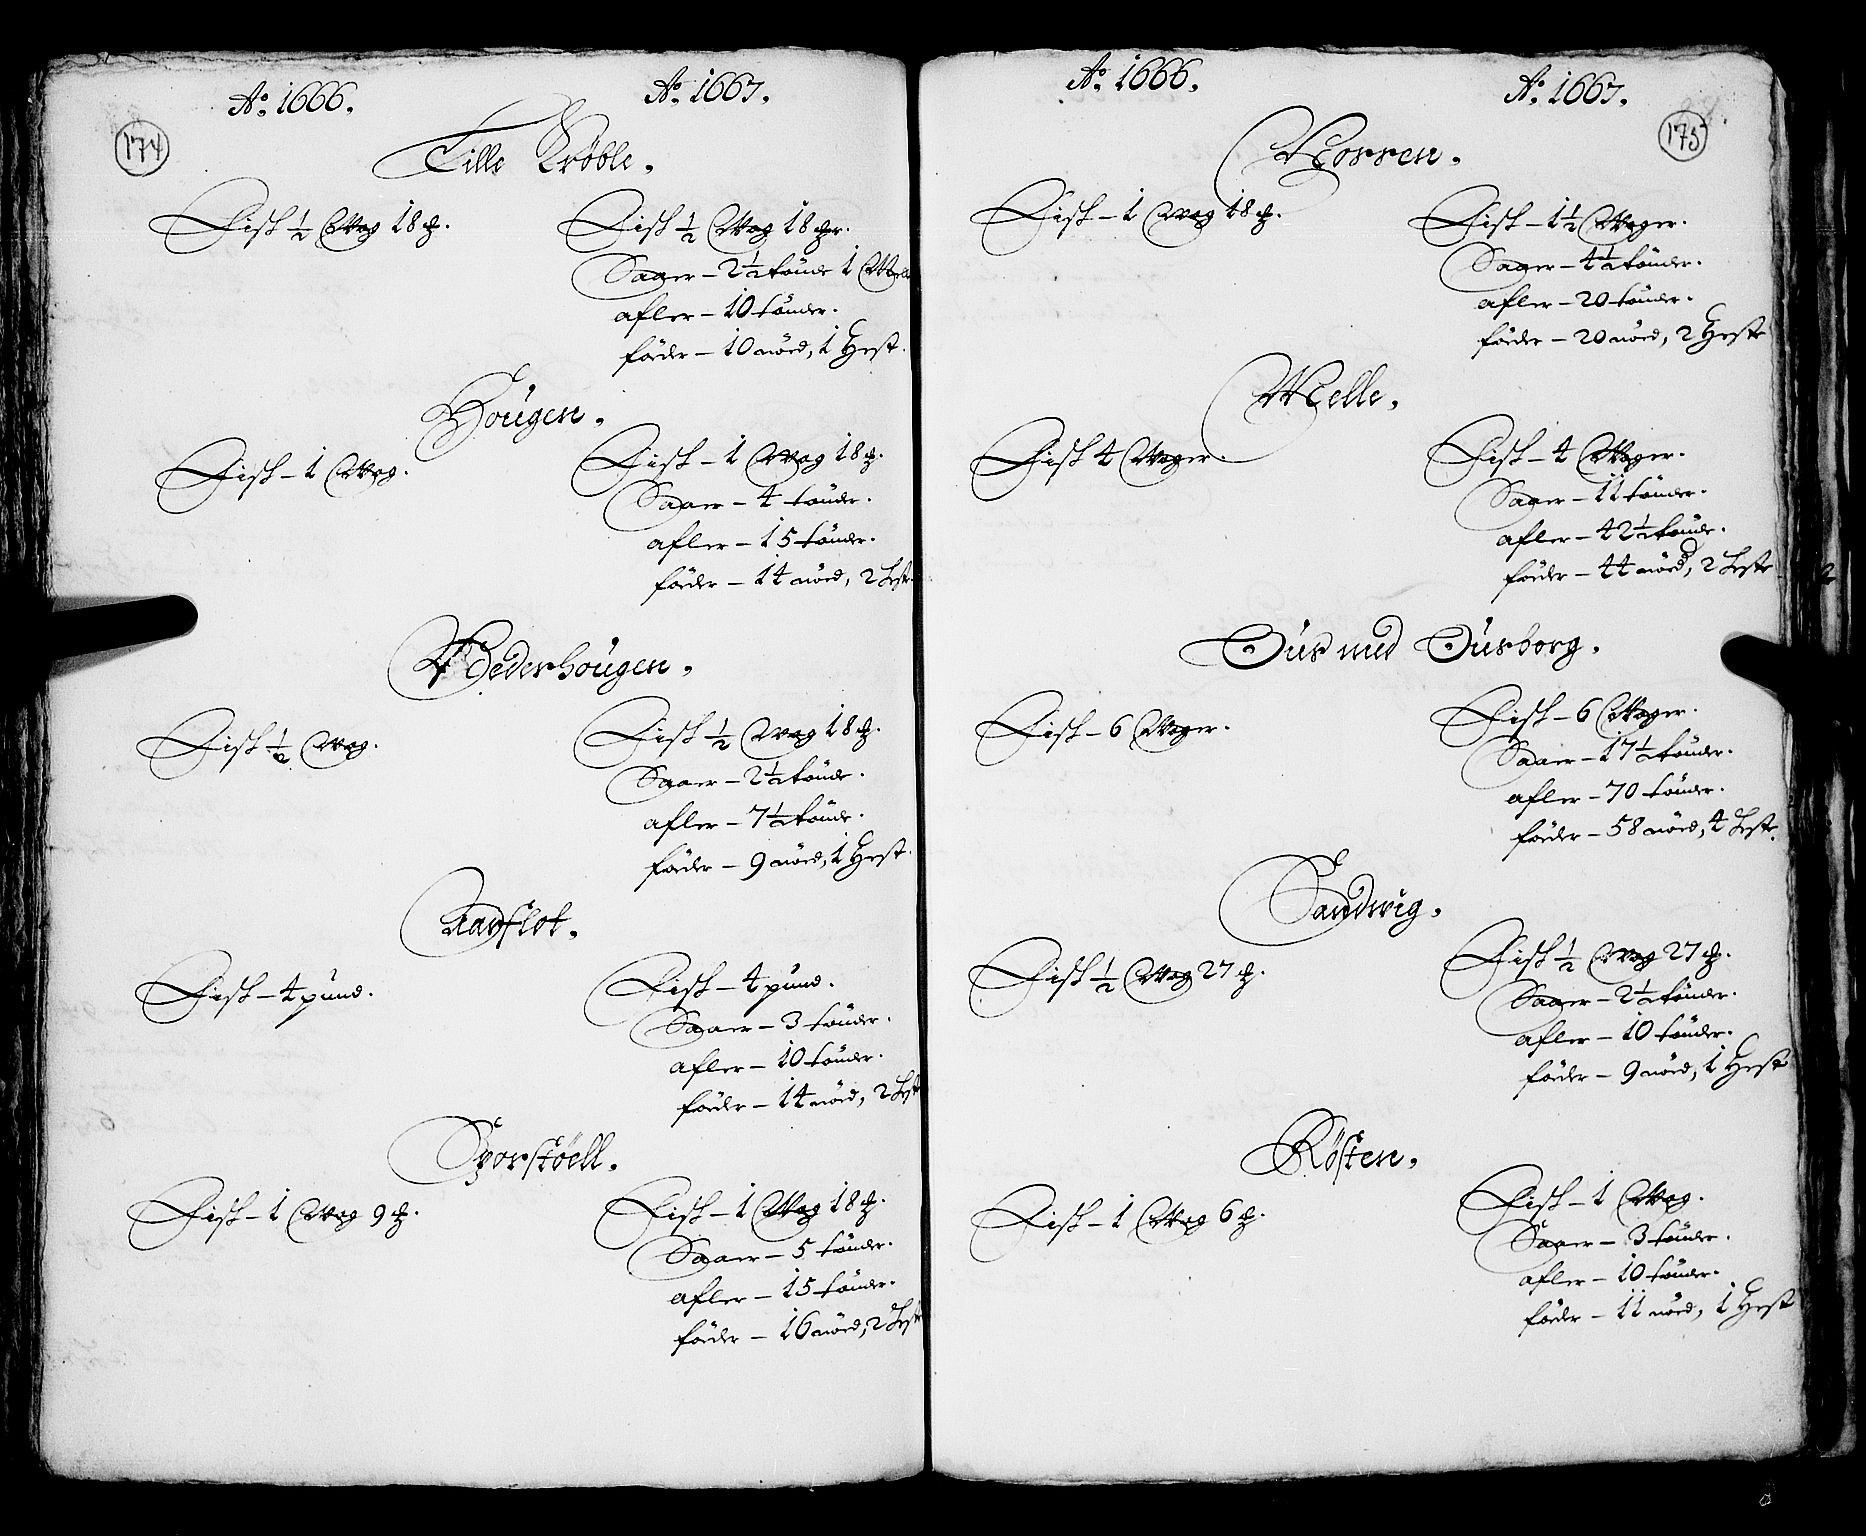 174
Aö. 1666.
Aö. 1667.
Lille Krøble.
Fisk ½ Wog 18 ℔.
Fisk ½ Wog 18 ℔er.
Saaer – 2½ tönde 1
afler – 10 tönder.
föder – 10 nöed, 1 Hest.
Hougen.
Fisk – 1 Wog.
Fisk – 1 Wog 18 ℔.
Saaer – 4 tönder.
afler – 15 tönder.
föder – 14 nöed, 2 Heste
Wederhougen.
Fisk ½ Wog.
Fisk ½ Wog 18 ℔.
Saaer – 2½ tönde.
afler – 7½ tönde.
föder – 9 nöed, 1 Hest.
Aarflot.
Fisk – 4 pund.
Fisk – 4 pund.
Saaer – 3 tönder.
afler – 10 tönder.
föder – 14 nöed, 2 Hest
Sporstöell.
Fisk – 1 Wog 9 ℔.
Fisk – 1 Wog 18 ℔.
Saaer – 5 tönder.
afler – 15 tönder.
föder – 16 nöed, 2 Hest
175
Aö. 1666.
Aö. 1667.
Mosren.
Fisk – 1 Wog 18 ℔.
Fisk – 1½ Woger.
Saaer – 4½ tönder.
afler – 20 tönder.
föder – 20 nöed, 2 Heste
Melle.
Fisk 4 Woger.
Fisk – 4 Woger.
Saaer – 11 tönder.
afler – 42½ tönde.
föder – 44 nöed, 2 Heste
Öus med Öusborg.
Fisk – 6 Woger.
Fisk – 6 Woger.
Saaer – 17½ tönder.
afler – 70 tönder.
föder – 58 nöed, 4 Heste.
Sandwig.
Fisk ½ Wog 27 ℔.
Fisk ½ Wog 27 ℔.
Saaer – 2½ tönder.
afler – 10 tönder.
föder – 9 nöed, 1 Hest
Røsten.
Fisk – 1 Wog 6 ℔.
Fisk – 1 Wog.
Saaer – 3 tönder.
afler – 10 tönder.
föder – 11 nöed, 1 Hest